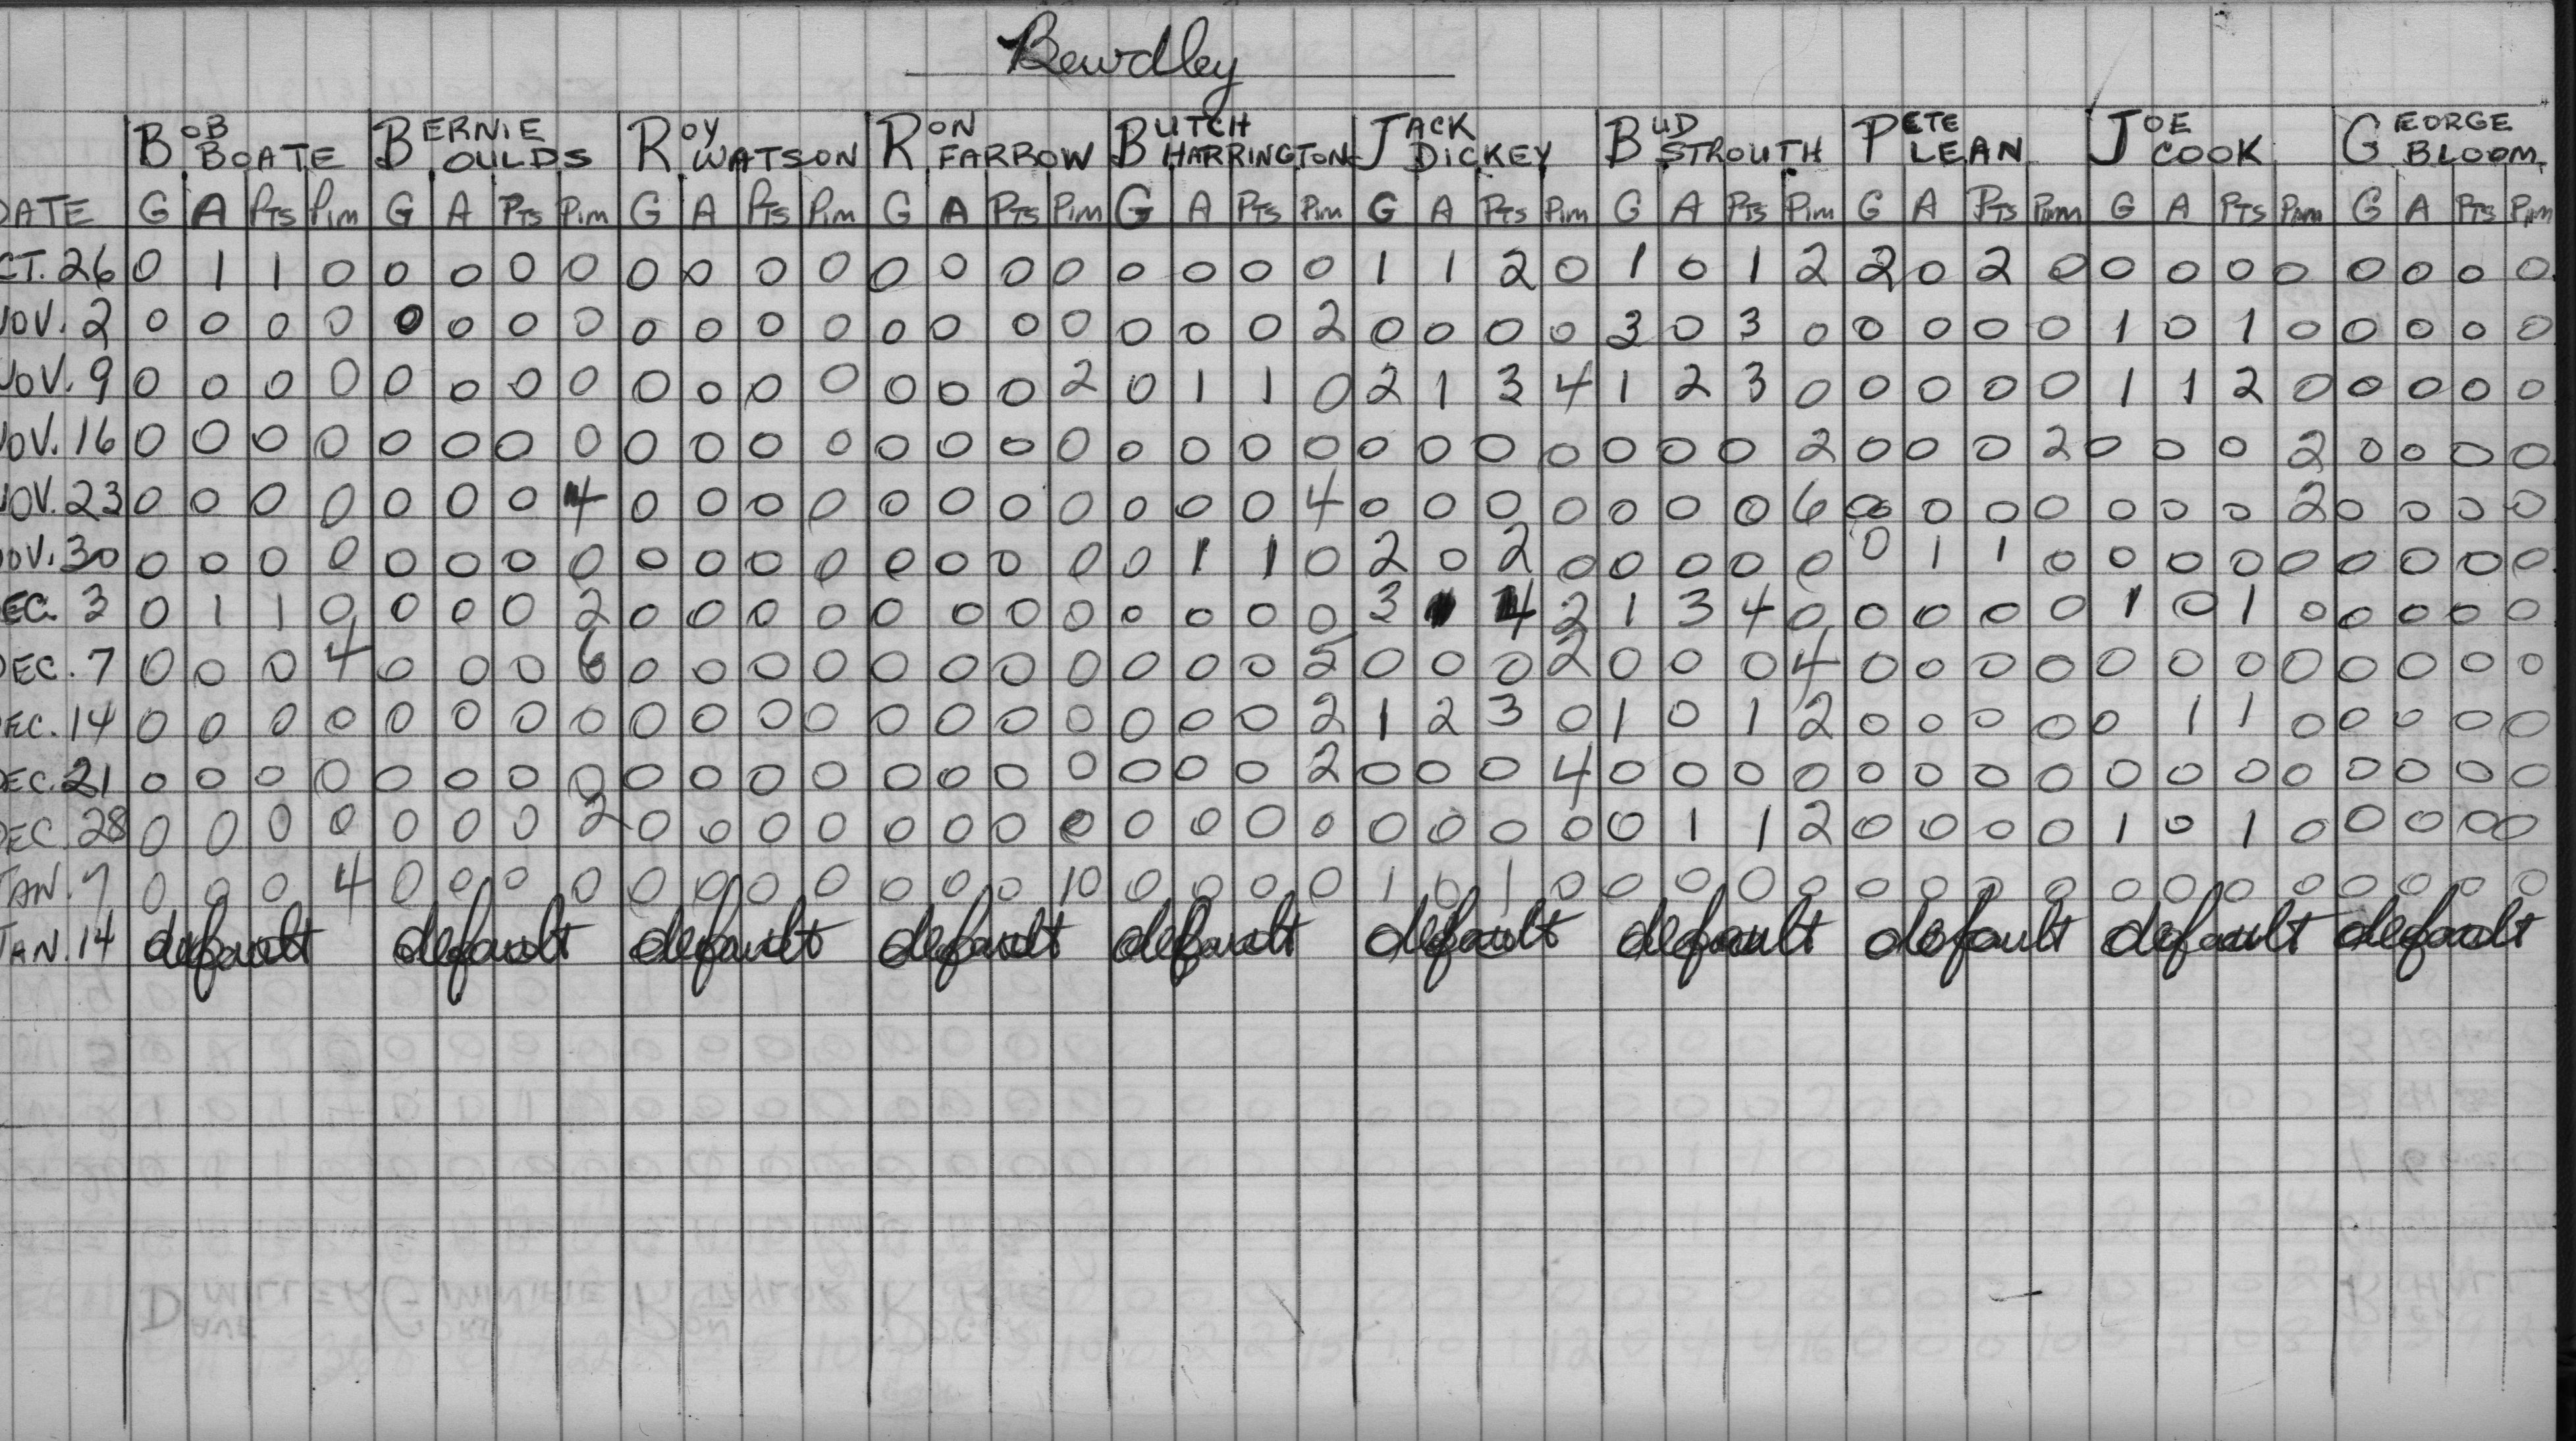 Bewdley
BOB BOATE BERNIE OULDS ROY WATSON RON FARROW BUTCH HARRINGTON JACK DICKEY BUD STROUTH PETE LEAN JOE COOK GEORGE BLOOM
DATE G A PTS Pim G A PTS Pim G A PTS Pim G A PTS Pim G A PTS Pim G A PTS Pim G A PTS Pim G A PTS Pim G A PTS Pim G A PTS Pim
CT. 26 0 1 1 0 0 0 0 0 0 0 0 0 0 0 0 0 0 0 0 0 1 1 2 0 1 0 1 2 2 0 2 0 0 0 0 0 0 0 0 0
NOV. 2 0 0 0 0 0 0 0 0 0 0 0 0 0 0 0 0 0 0 0 2 0 0 0 0 3 0 3 0 0 0 0 0 1 0 1 0 0 0 0 0
NOV. 9 0 0 0 0 0 0 0 0 0 0 0 0 0 0 0 2 0 1 1 0 2 1 3 4 1 2 3 0 0 0 0 0 1 1 2 0 0 0 0 0
OV. 16 0 0 0 0 0 0 0 0 0 0 0 0 0 0 0 0 0 0 0 0 0 0 0 0 0 0 0 2 0 0 0 2 0 0 0 2 0 0 0 0
NOV. 23 0 0 0 0 0 0 0 4 0 0 0 0 0 0 0 0 0 0 0 4 0 0 0 0 0 0 0 6 0 0 0 0 0 0 0 2 0 0 0 0
OV. 30 0 0 0 0 0 0 0 0 0 0 0 0 0 0 0 0 0 1 1 0 2 0 2 0 0 0 0 0 0 1 1 0 0 0 0 0 0 0 0 0
EC. 3 0 1 1 0 0 0 0 2 0 0 0 0 0 0 0 0 0 0 0 0 3 1 4 2 1 3 4 0 0 0 0 0 1 0 1 0 0 0 0 0
DEC. 7 0 0 0 4 0 0 0 6 0 0 0 0 0 0 0 0 0 0 0 5 0 0 0 2 0 0 0 4 0 0 0 0 0 0 0 0 0 0 0 0
EC. 14 0 0 0 0 0 0 0 0 0 0 0 0 0 0 0 0 0 0 0 2 1 2 3 0 1 0 1 2 0 0 0 0 0 1 1 0 0 0 0 0
EC. 21 0 0 0 0 0 0 0 0 0 0 0 0 0 0 0 0 0 0 0 2 0 0 0 4 0 0 0 0 0 0 0 0 0 0 0 0 0 0 0 0
DEC. 28 0 0 0 0 0 0 0 2 0 0 0 0 0 0 0 0 0 0 0 0 0 0 0 0 0 1 1 2 0 0 0 0 1 0 1 0 0 0 0 0
JAN. 7 0 0 0 4 0 0 0 0 0 0 0 0 0 0 0 10 0 0 0 0 1 0 1 0 0 0 0 0 0 0 0 0 0 0 0 0 0 0 0 0
JAN. 14 default default default default default default default default default default